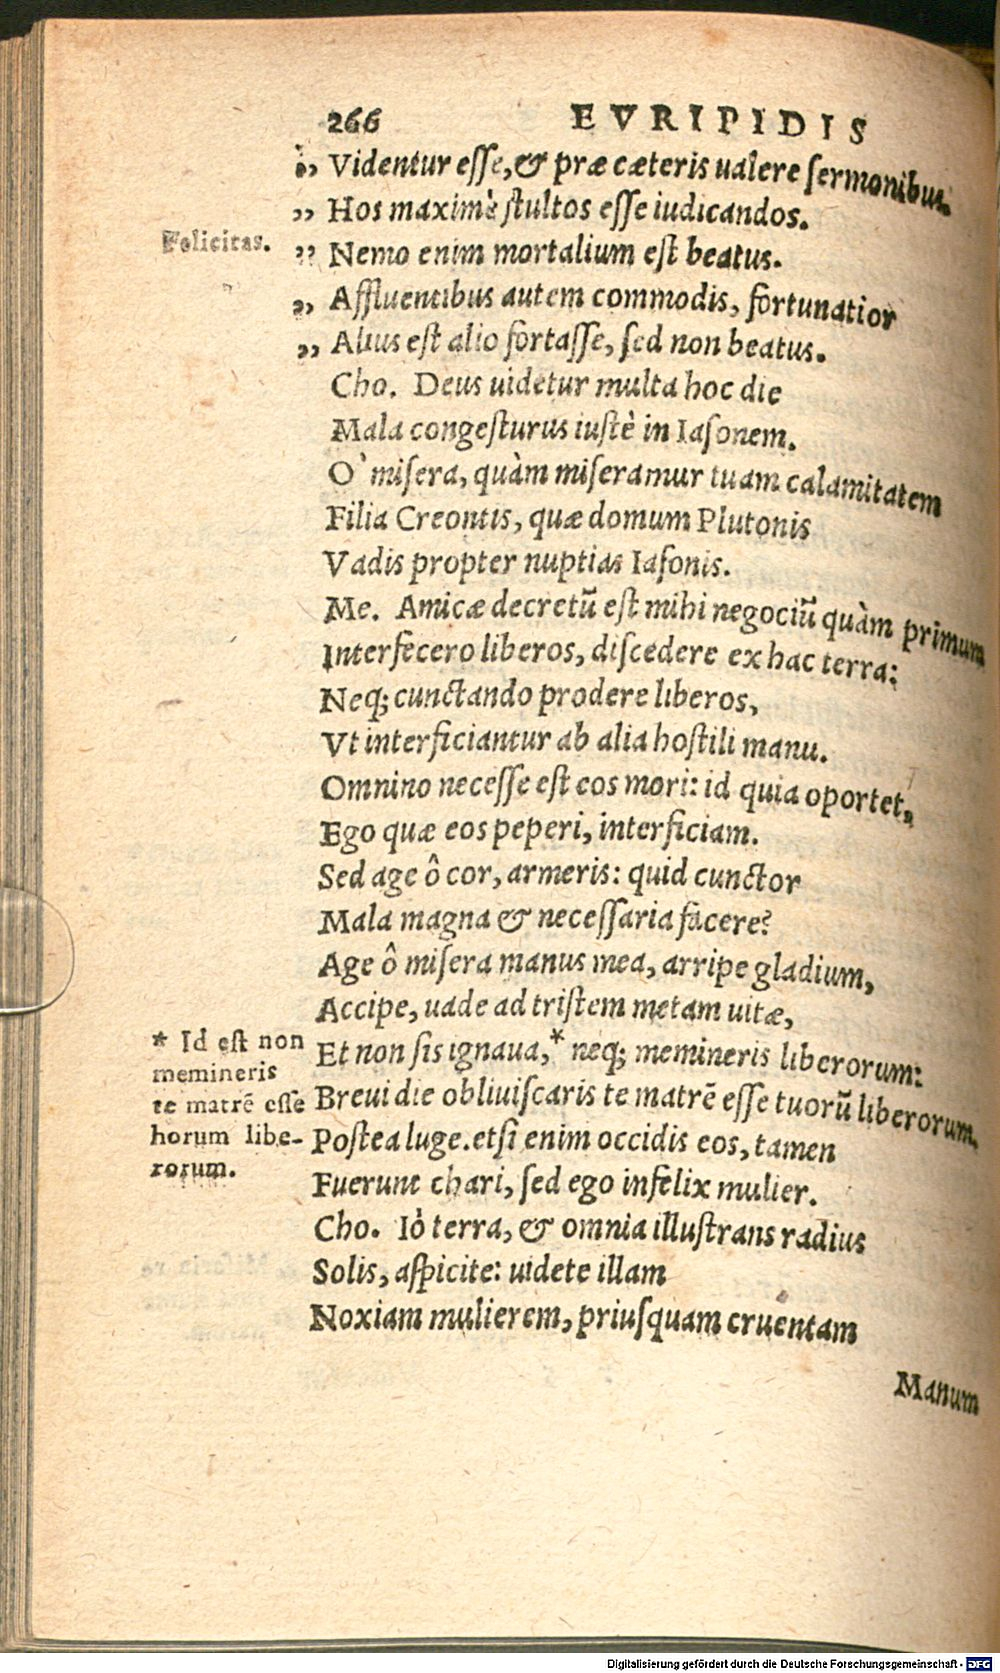 266 EVRIPIDIS
„ Videntur esse, & præ cæteris ualere sermonibus.
„ Hos maximè stultos esse iudicandos.
Felicitas.
„ Nemo enim mortalium est beatus.
„ Affluentibus autem commodis, fortunatior
„ Alius est alio fortasse, sed non beatus.
Cho. Deus uidetur multa hoc die
Mala congesturus iustè in Iasonem.
O` misera, quàm miseramur tuam calamitatem
Filia Creontis, quæ domum Plutonis
Vadis propter nuptias Iasonis.
Me. Amicæ decretũ est mihi negociũ quàm primum
Interfecero liberos, discedere ex hac terra:
Neq; cunctando prodere liberos,
Vt interficiantur ab alia hostili manu.
Omnino necesse est eos mori: id quia oportet,
Ego quæ eos peperi, interficiam.
Sed age ô cor, armeris: quid cunctor
Mala magna & necessaria facere?
Age ô misera manus mea, arripe gladium,
Accipe, uade ad tristem metam uitæ,
Et non sis ignaua,* neq; memineris liberorum:
Breui die obliuiscaris te matrẽ esse tuorũ liberorum.
Postea luge. etsi enim occidis eos, tamen
Fuerunt chari, sed ego infelix mulier.
* Id est non
memineris
te matrẽ esse
horum libe-
rorum.
Cho. Iò terra, & omnia illustrans radius
Solis, aspicite: uidete illam
Noxiam mulierem, priusquam cruentam
Manum
Digitalisierung gefördert durch die Deutsche Forschungsgemeinschaft - DFG